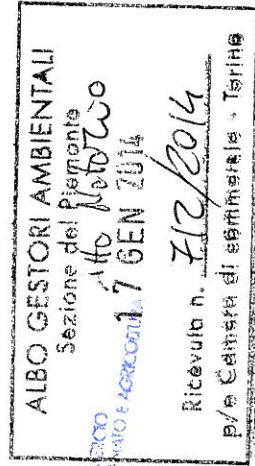 ALBO GESTORI AMBIENTALI
Sezione del Piemonte
Atto Notorio
17 GEN 2014
ATO E AGRICOLTURA
Ricevuta n. 712/2014
p/o Camera di commercio - Torino